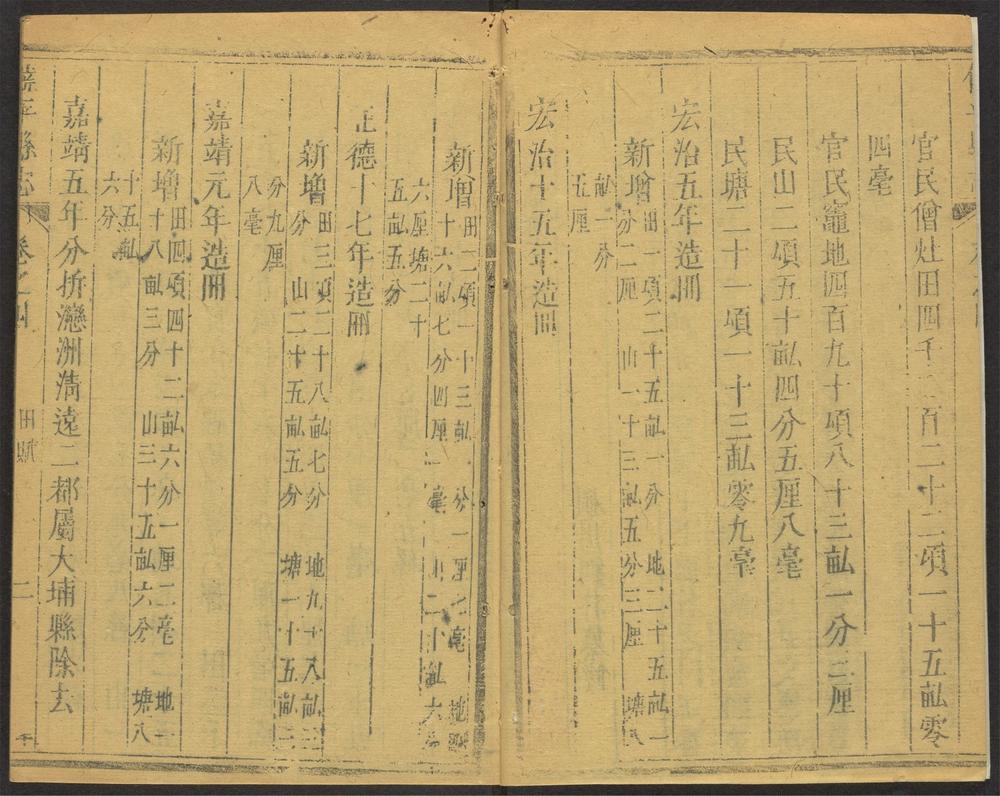 官民僧灶田四千二百二十二頃一十五畝零
四毫
官民竈地四百九十頃八十三畝一分三厘
民山二頃五十畝四分五厘八毫
民塘二十一頃一十三畝零九毫
宏治五年造冊
新增田一頃二十五畝一分 地二十五畝一
分二厘 山一十三畝五分三厘 塘
畝一分
五厘
宏治十五年造冊
新增田二頃一十三畝 分一厘七毫 地
十六畝七分四厘一毫 山二十畝六
六厘塘二十
五畝五分
正德十七年造冊
新增田三頃二十八畝七分 地九十八畝三
分 山二十五畝五分 塘一十五畝二
分九厘
八毫
嘉靖元年造冊
新增田四頃四十二畝六分一厘二毫 地一
十八畝三分 山三十五畝六分 塘八
十五畝
六分
嘉靖五年分拆灣洲清遠二都屬大埔縣除去
饒平縣志 卷之四 田賦 二